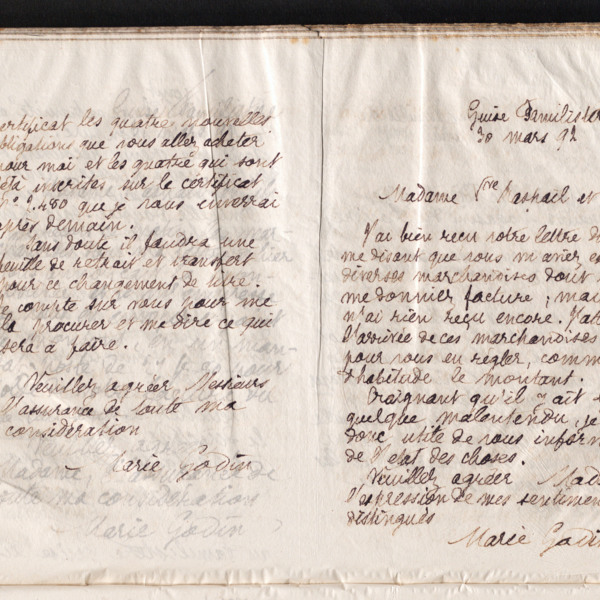 certificat les quatres nouvelles
obligations que vous aller acheter
pour moi et les quatre qui sont
déjà inscrites sur le certificat
n° 2.480 que je vous enverrai
après demain.
Sans doute il faudra une
feuille de retrait et transfert
pour ce changement de titre.
Je compte sur vous pour me
la procurer et me dire ce qu'il
sera à faire.
Veuillez agréer, Messieurs
l'assurance de toute ma
considération
Marie Godin
Guise Familistère
30 mars 92
Madame Vve Raphaël et
J'ai bien reçu votre lettre
me disant que vous m'aviez
diverses marchandises dont
me donnier facture, mais
n'ai rien reçu encore. J'
l'arrivée de ces marchandises
pour vous en régler, comme
d'habitude le montant.
Craignant qu'il y ait
quelque malentendu, je
donc utile de vous inform
de l'état des choses.
Veuillez agréer Mada
l'expression de mes sentiment
distingués
Marie Godin